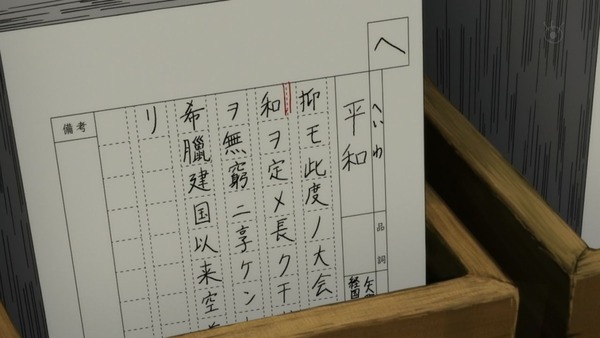 へ
へいわ
平和
品詞
抑モ此度ノ大会
和ヲ定メ長ク干
ヲ無窮ニ享ケン
希臘建国以来空
リ
備考